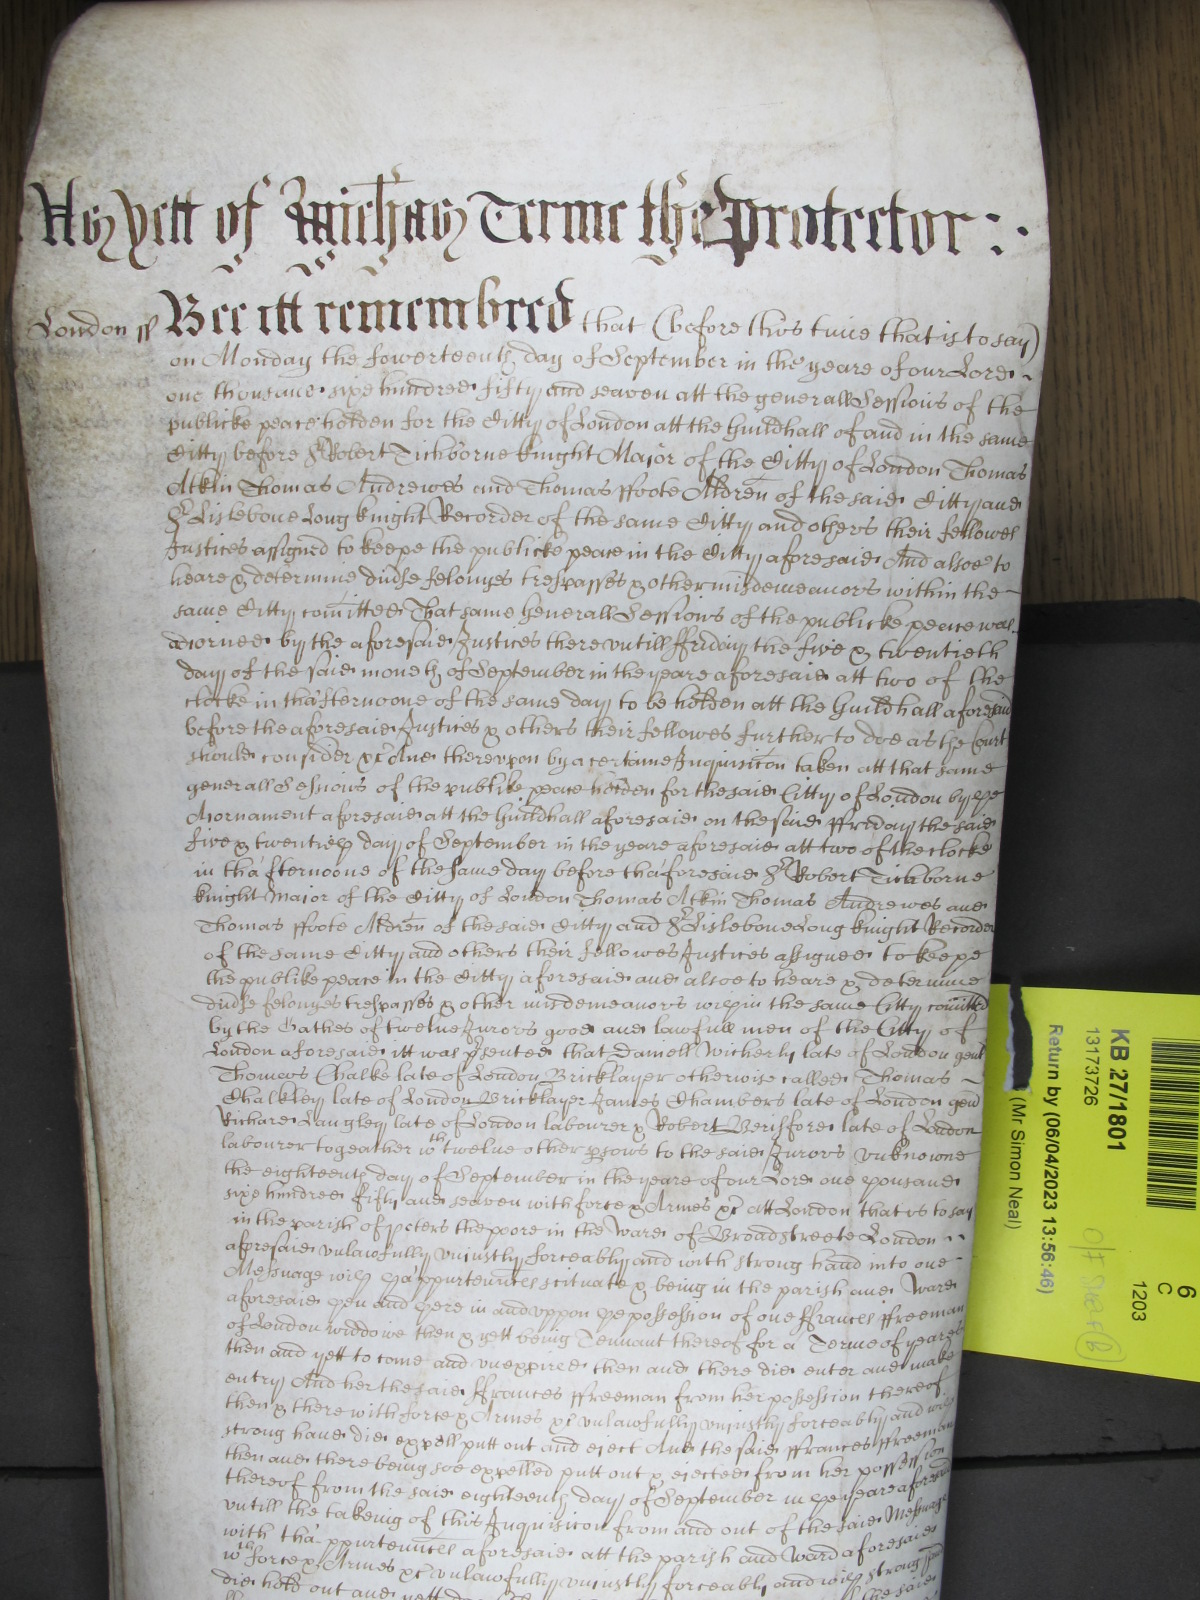 As yett of Michas Terme the Protector :·
London ss Bee itt remembred that (before this time that is to say)
on Monday the fowerteenth day of September in the yeare of our Lord
one thousand sixe hundred fifty and seaven att the generall Sessions of the
publicke peace holden for the Citty of London att the Guildhall of and in the same
Citty before Sr Robert Tichborne knight Maior of the Citty of London Thomas
Atkin Thomas Andrewes and Thomas ffoote Aldren of the said Citty and
Sr Lislebone Long knight Recorder of the same Citty and others their fellowes
Justices assigned to keepe the publicke peace in the Citty aforesaid And alsoe to
heare & determine diuse felonyes trespasses & other misdemeanors within the
same Citty comitted That same generall Sessions of the publicke peace was
adiorned by the aforesaid Justices there vntill ffriday the five & twentieth
day of the said moneth of September in the yeare aforesaid att two of the
clocke in tha'fternoone of the same day to be holden att the Guildhall aforesaid
before the aforesaid Justices & others their fellowes further to doe as the Court
should consider &c And therevpon by a certaine Inquisicon taken att that same
generall Sessions of the publike peace holden for the said Citty of London by ye
Adiornament aforesaid att the Guildhall aforesaid on the said ffriday the said
five & twentieth day of September in the yeare aforesaid att two of the clocke
in tha'fternoone of the same day before tha'foresaid Sr Robert Tichborne
knight Maior of the Citty of London Thomas Atkin Thomas Andrewes and
Thomas ffoote Aldren of the said Citty and Sr Lislebone Long knight Recorder
of the same Citty and others their fellowes Justices assigned to keepe
the publike peace in the Citty aforesaid and alsoe to heare & determine
diuse felonyes trespasses & other misdemeanors wthin the same Citty comitted
by the Oathes of twelue Jurors good and lawfull men of the Citty of
London aforesaid itt was psented that Daniell Wicherly late of London gent
Thomas Chalke late of London Bricklayer otherwise called Thomas
Chalkley late of London Bricklayer James Chambers late of London gent
Richard Langley late of London labourer & Robert Berisford late of London
labourer togeather wth twelue other psons to the said Jurors vnknowne
the eighteenth day of September in the yeare of our Lord one thousand
sixe hundred fifty and seaven with force & Armes &c att London that is to say
in the parish of peters the poore in the Ward of Broadstreete London
aforesaid vnlawfully vniustly forceably and with strong hand into one
Messuage with tha'ppurtenances scituate & being in the parish and Ward
aforesaid then and there in and vppon the possession of one ffrances ffreeman
of London widdowe then & yett being Tennant thereof for a Terme of yeares
then and yett to come and vnexpired then and there did enter and make
entry And her the said ffrances ffreeman from her possession thereof
then & there with force & Armes &c vnlawfully vniustly forceably and with
strong hand did expell putt out and eject And the said ffrances ffreeman
then and there being soe expelled putt out & ejected from her possession
thereof from the said eighteenth day of September in the yeare aforesaid
vntill the takeing of this Inquisicon from and out of the said Messuage
with tha'ppurtenances aforesaid att the parish and Ward aforesaid
wth force & Armes &c vnlawfully vniustly forceably and with strong hand
did hold out and yett
KB 27/1801
13173726
Return by (06/04/2023 13:56:46)
(Mr Simon Neal)
6
C
1203